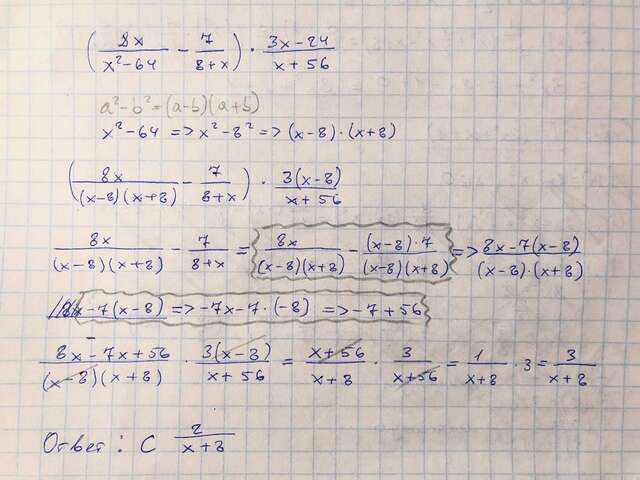 (8x/(x²-64) - 7/(8+x)) · (3x-24)/(x+56)
a²-b²=(a-b)(a+b)
x²-64 => x²-8² => (x-8)·(x+8)
(8x/((x-8)(x+8)) - 7/(8+x)) · 3(x-8)/(x+56)
8x/((x-8)(x+8)) - 7/(8+x) = 8x/((x-8)(x+8)) - (x-8)·7/((x-8)(x+8)) => (8x-7(x-8))/((x-8)·(x+8))
-7(x-8) => -7x-7·(-8) => -7+56
(8x-7x+56)/((x-8)(x+8)) · 3(x-8)/(x+56) = (x+56)/(x+8) · 3/(x+56) = 1/(x+8) · 3 = 3/(x+8)
Ответ: С 2/(x+8)